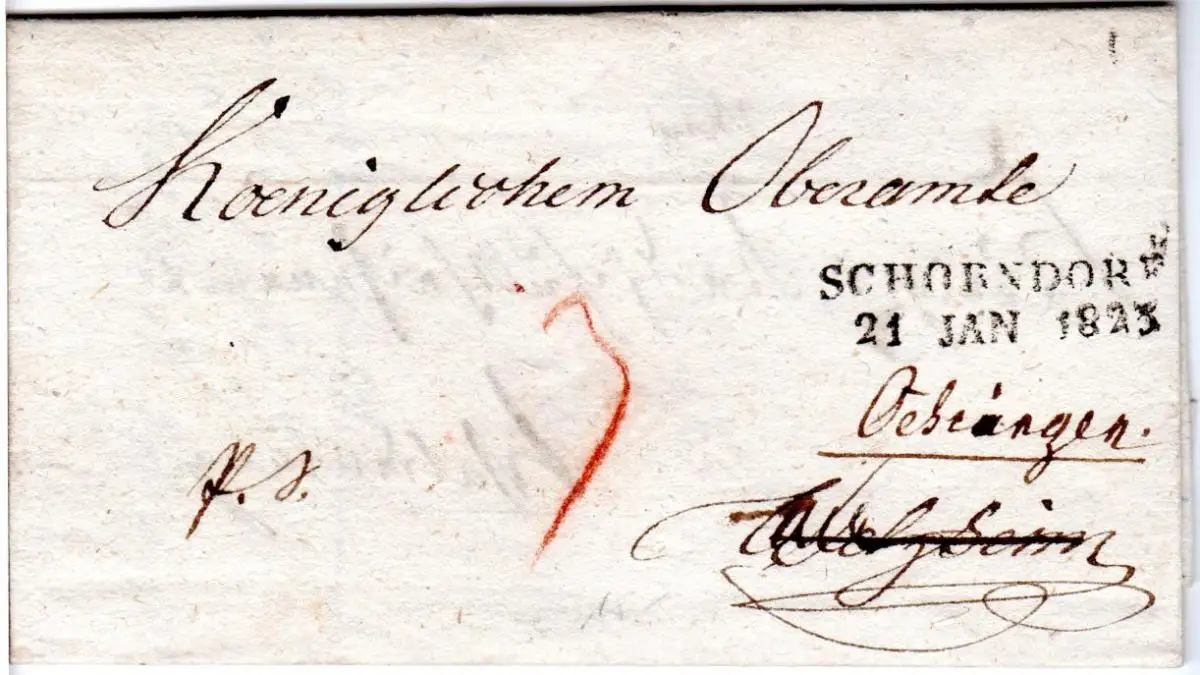 Koeniglichem Oberamte
SCHORNDORF
21 JAN 1823
Oehringen.
p. s.
Welzheim